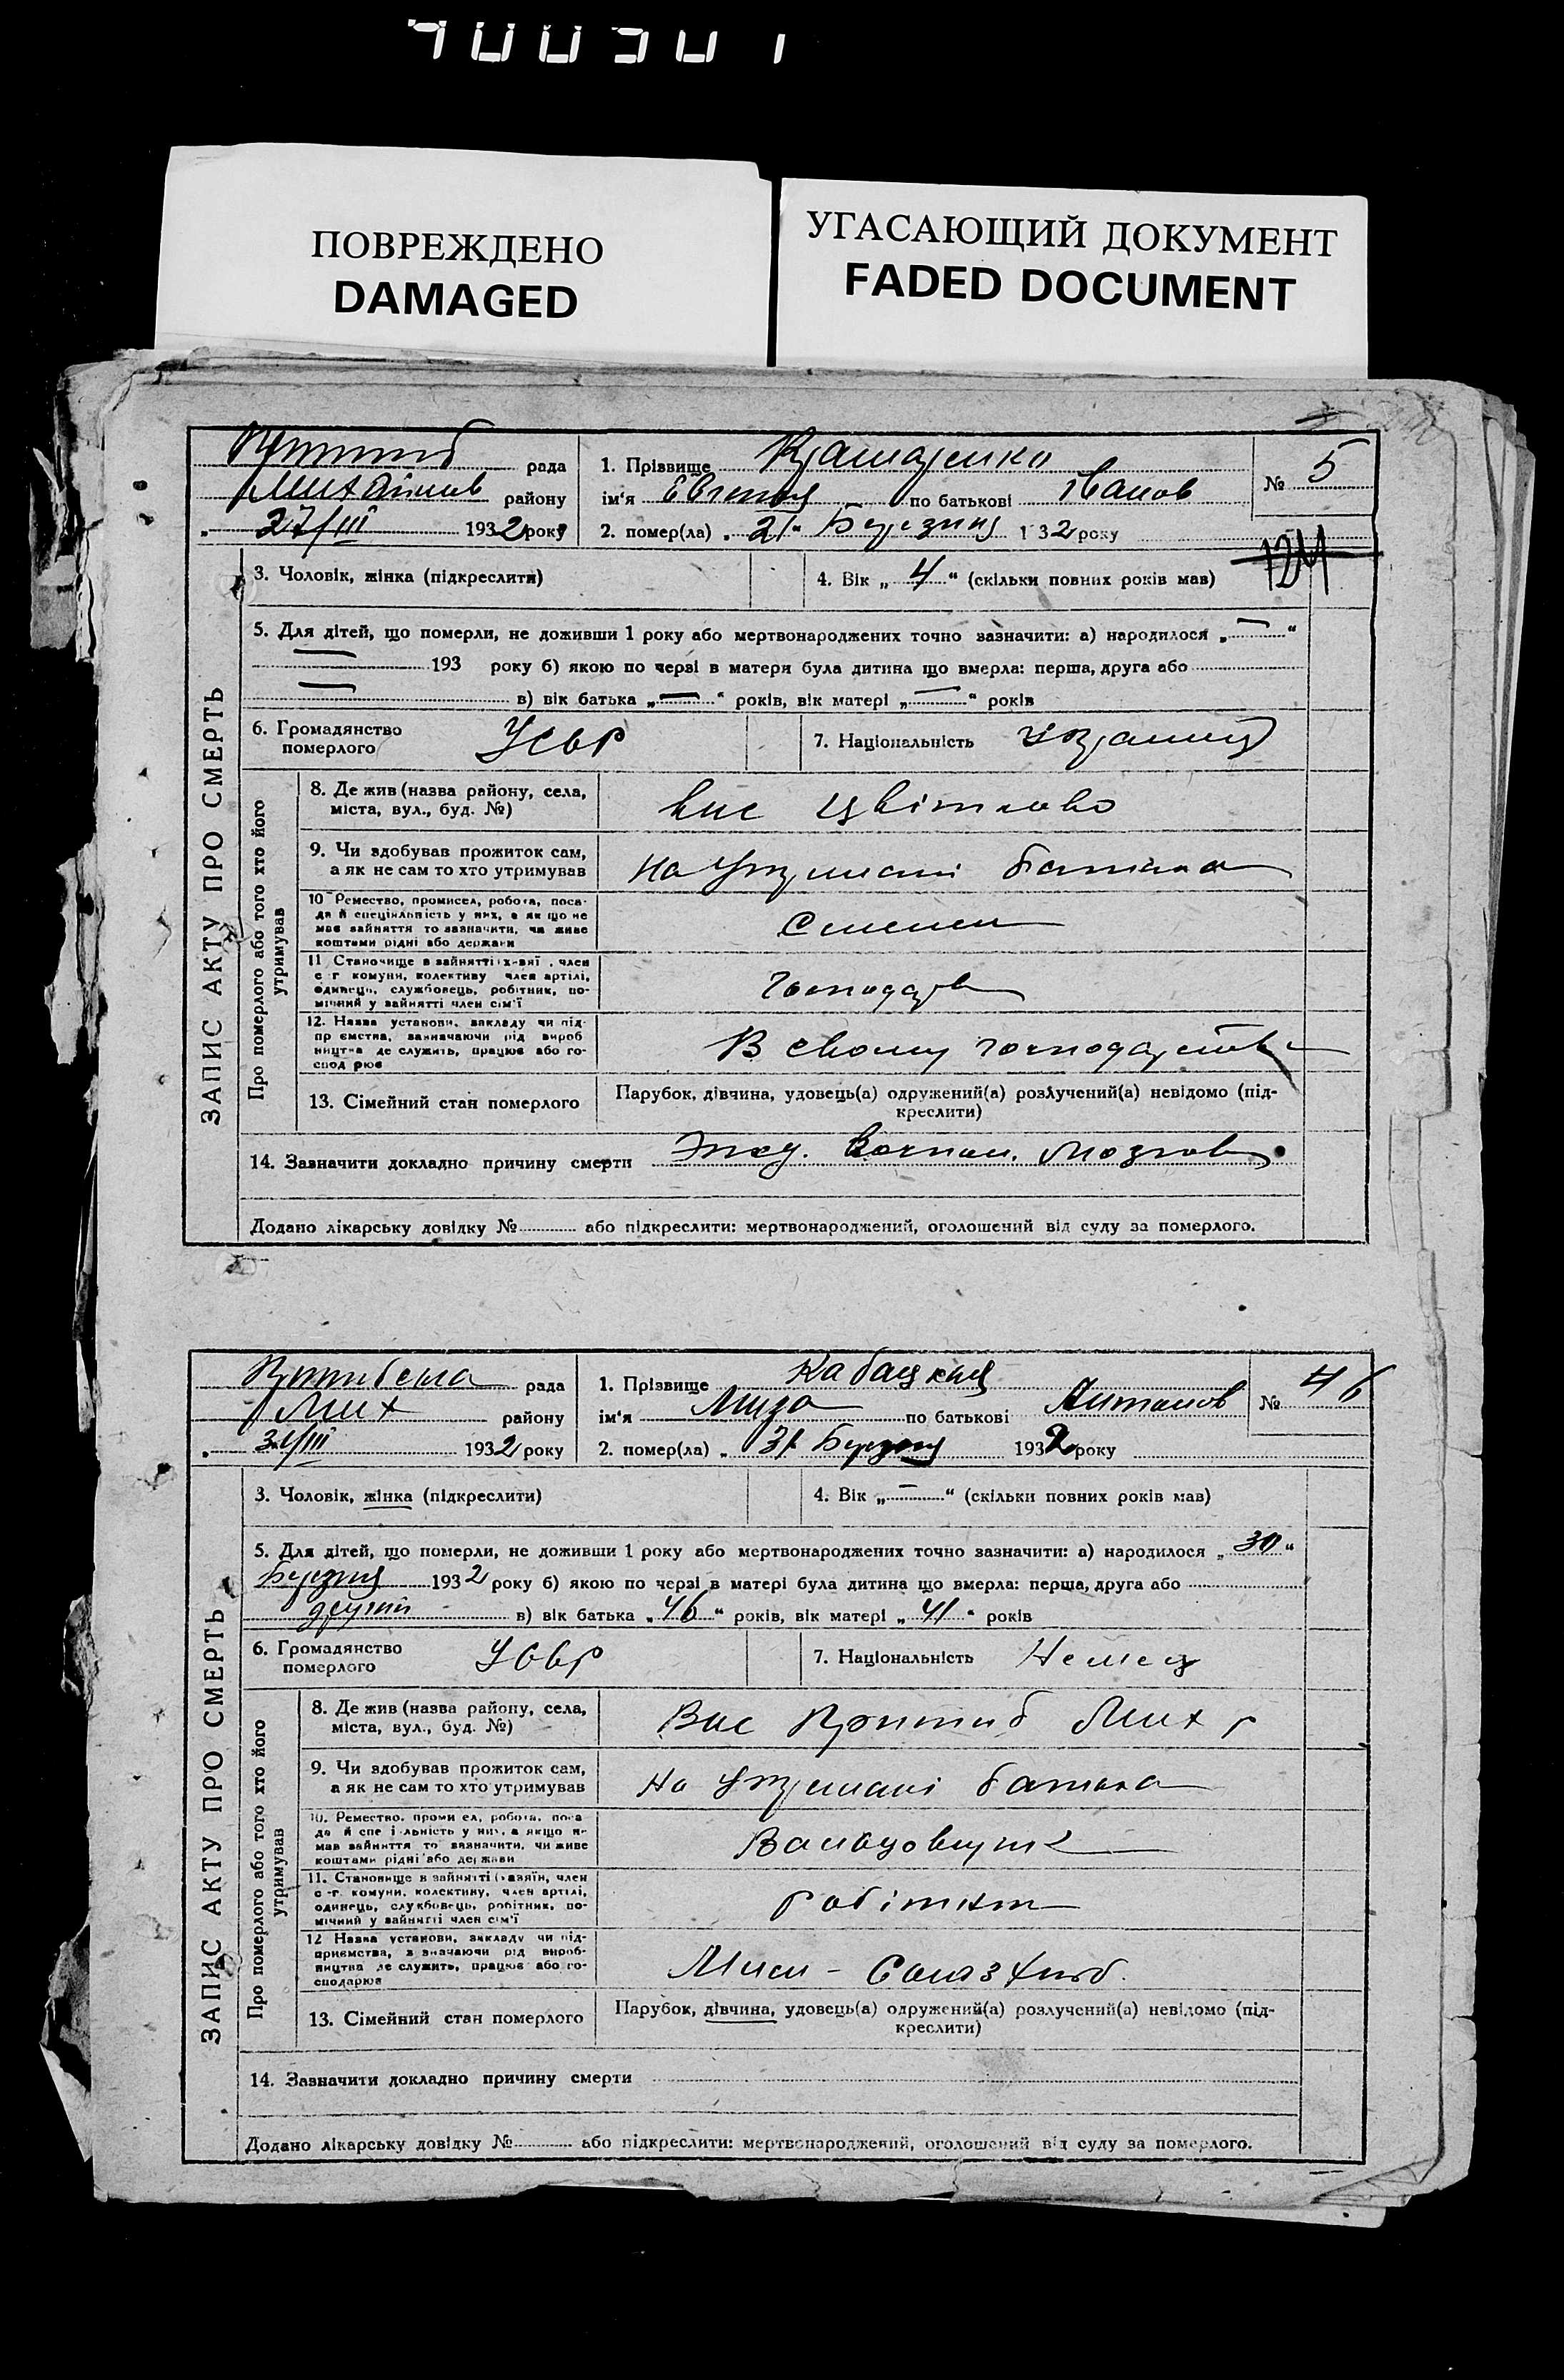 ПОВРЕЖДЕНО
DAMAGED
УГАСАЮЩИЙ ДОКУМЕНТ
FADED DOCUMENT
ЗАПИС АКТУ ПРО СМЕРТЬ
рада
району
„ 27/III 1932 року
1. Прізвище
ім'я Євгенія по батькові Іванов
2. помер(ла) „ 21 " Березня 1 32 року
№ 5
124
3. Чоловік, жінка (підкреслити)
4. Вік „ 4 " (скільки повних років мав)
5. Для дітей, що померли, не доживши 1 року або мертвонароджених точно зазначити: а) народилося „ — "
— 193 року б) якою по черзі в матери була дитина що вмерла: перша, друга або
— в) вік батька „ — " років, вік матері „ — " років
6. Громадянство
померлого
УСРР
7. Національність
Про померлого або того хто його
утримував
8. Де жив (назва району, села,
міста, вул., буд. №)
9. Чи здобував прожиток сам,
а як не сам то хто утримував
На утримані батька
10 Ремество, промисел, робота, поса-
да й спеціяльність у них, а як що не
мав зайняття то зазначити, чи живе
коштами рідні або держави
11 Становище в зайнятті х-зяї , член
с г комуни, колективу член артілі,
одинець, службовець, робітник, по-
мічний у зайнятті член сім'ї
12. Назва установи, закладу чи під-
пр ємства, зазначаючи рід вироб
ництва де служить, працює або го-
спод рює
В свому господарстві
13. Сімейний стан померлого
Парубок, дівчина, удовець(а) одружений(а) розлучений(а) невідомо (під-
креслити)
14. Зазначити докладно причину смерти
Додано лікарську довідку № або підкреслити: мертвонароджений, оголошений від суду за померлого.
ЗАПИС АКТУ ПРО СМЕРТЬ
рада
Мих району
„ 31/III 1932 року
1. Прізвище Кабацкия
ім'я по батькові Антонов
2. помер(ла) „ 31 Березня 1932 року
№ 46
3. Чоловік, жінка (підкреслити)
4. Вік „ — " (скільки повних років мав)
5. Для дітей, що померли, не доживши 1 року або мертвонароджених точно зазначити: а) народилося „ 30 "
Березня 1932 року б) якою по черзі в матері була дитина що вмерла: перша, друга або
в) вік батька „ 46 " років, вік матері „ 41 " років
6. Громадянство
померлого
УСРР
7. Національність Немец
Про померлого або того хто його
утримував
8. Де жив (назва району, села,
міста, вул., буд. №)
Мих р
9. Чи здобував прожиток сам,
а як не сам то хто утримував
На утримані батька
10. Ремество, проми ел, робота, поса
да й спе і льність у них, а якщо н-
мав зайняття то зазначити, чи живе
коштами рідні або держави
11. Становище в зайнятті (хазяїн, член
с -г. комуни, колективу, член артілі,
одинець, службовець, робітник, по-
мічний у зайнятті член сім'ї
робітник
12 Назва установи, закладу чи під-
приємства, з значаючи рід вироб-
ництва де служить, працює або го-
сподарює
13. Сімейний стан померлого
Парубок, дівчина, удовець(а) одружений(а) розлучений(а) невідомо (під-
креслити)
14. Зазначити докладно причину смерти
Додано лікарську довідку № або підкреслити: мертвонароджений, оголошений від суду за померлого.